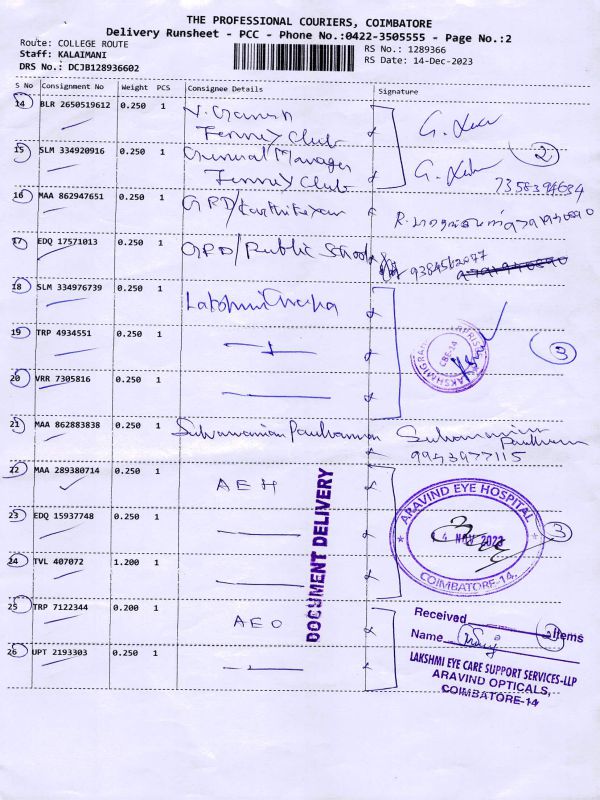 THE PROFESSIONAL COURIERS, COIMBATORE
Delivery Runsheet - PCC - Phone No.:0422-3505555 - Page No.:2
Route: COLLEGE ROUTE
Staff: KALAIMANI
DRS No.: DCJB128936602
RS No.: 1289366
RS Date: 14-Dec-2023
S No Consignment No Weight PCS Consignee Details Signature
14 BLR 2650519612 0.250 1
Club
15 SLM 334920916 0.250 1 General Manager
Club
2
7358394634
16 MAA 862947651 0.250 1 GRD/
17 EDQ 17571013 0.250 1 GRD/Public School 9384562077
18 SLM 334976739 0.250 1 Lakshmi
19 TRP 4934551 0.250 1
CBE-14
3
20 VRR 7305816 0.250 1
21 MAA 862883838 0.250 1
9943977115
22 MAA 289380714 0.250 1 AEH
ARAVIND EYE HOSPITAL
COIMBATORE-14.
3
23 EDQ 15937748 0.250 1
24 TVL 407072 1.200 1
DOCUMENT DELIVERY
25 TRP 7122344 0.200 1 AEO
Received Items
2
Name
26 UPT 2193303 0.250 1
LAKSHMI EYE CARE SUPPORT SERVICES-LLP
ARAVIND OPTICALS,
COIMBATORE-14